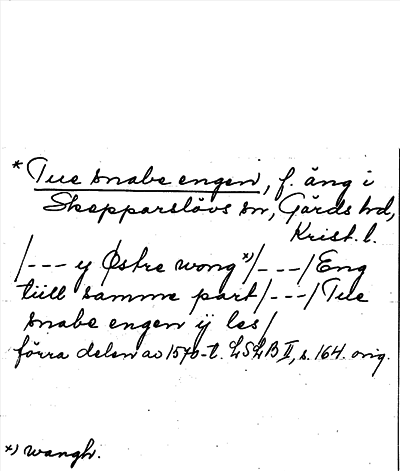 * Tue snabe engen, f. äng i
Skepparslövs sn, Gärds hd,
Krist. l.
/--- y Østre wong *)/---/ Eng
tiill samme part /---/ Tue
snabe engen ÿ les/
förra delen av 1570-t. LSLB II, s. 164. orig.
*) wangh.